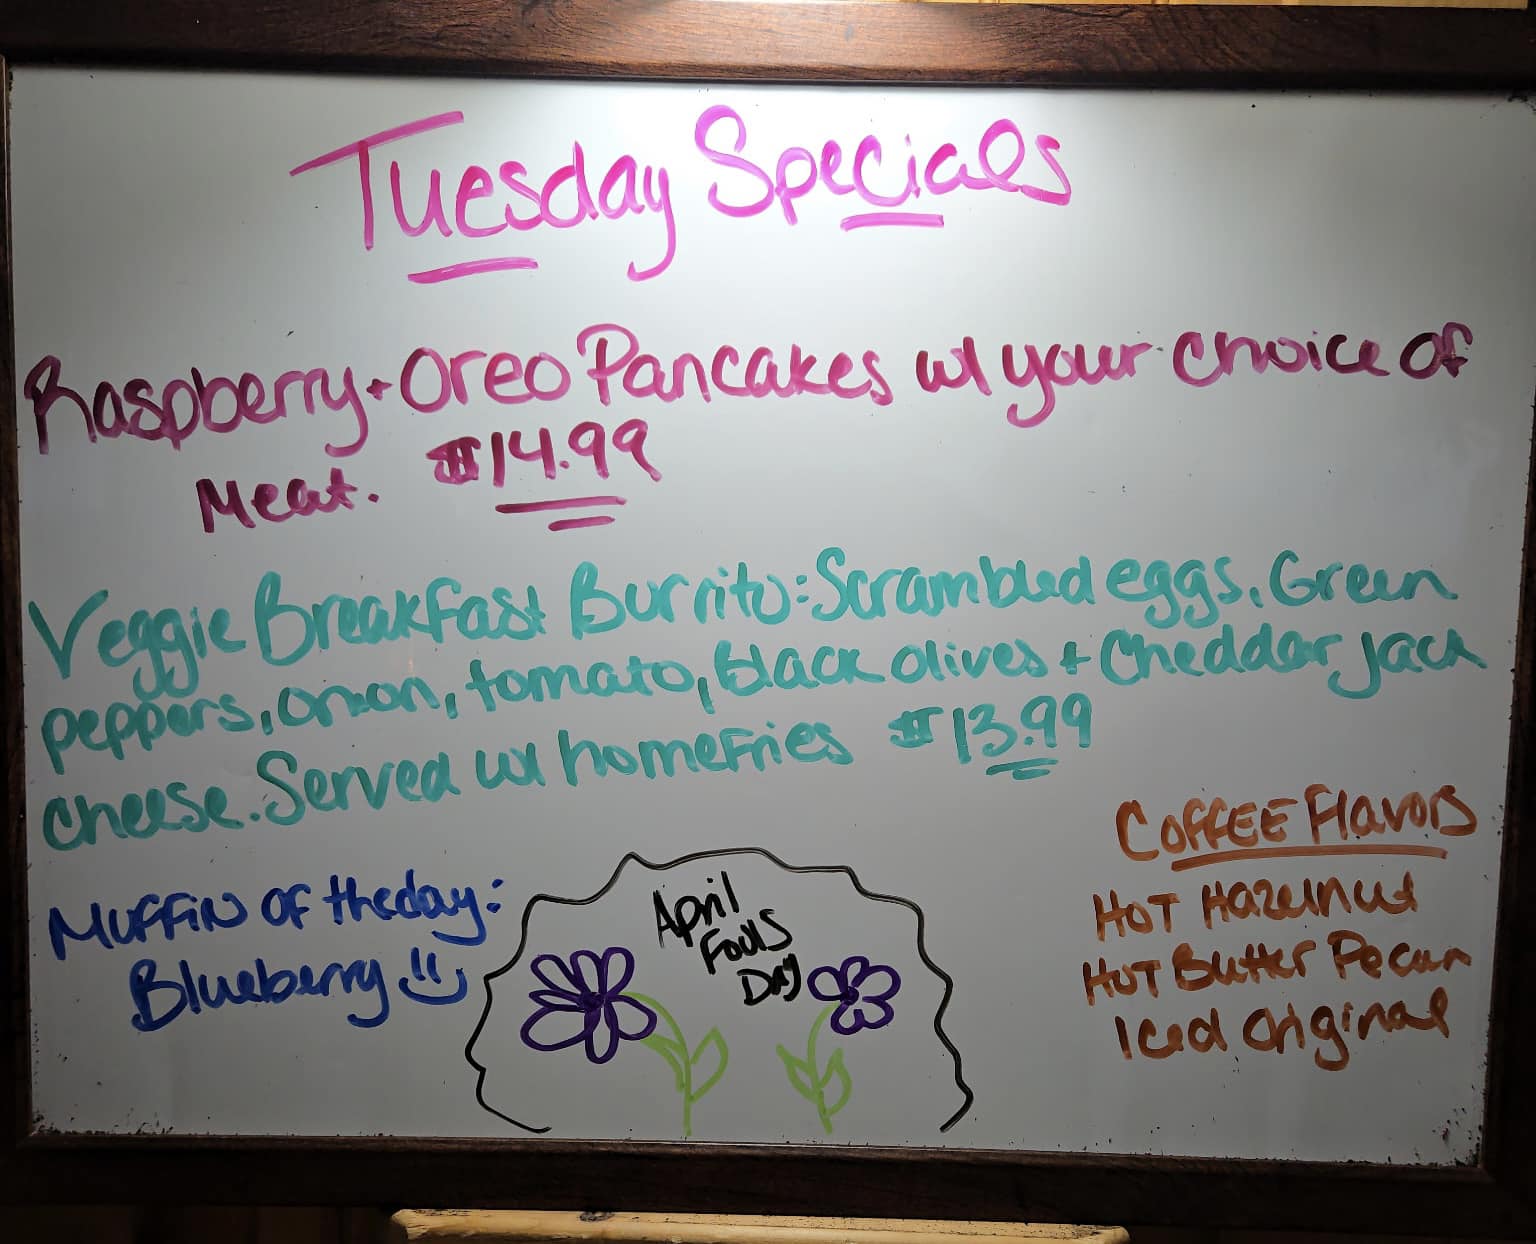 Tuesday Specials
Raspberry + Oreo Pancakes w/ your choice of
Meat. $14.99
Veggie Breakfast Burrito: Scrambled eggs, Green
peppers, onion, tomato, black olives + Cheddar jack
cheese. Served w/ homefries $13.99
Muffin of the day:
Blueberry
April
Fools
Day
Coffee Flavors
Hot Hazelnut
Hot Butter Pecan
Iced Original